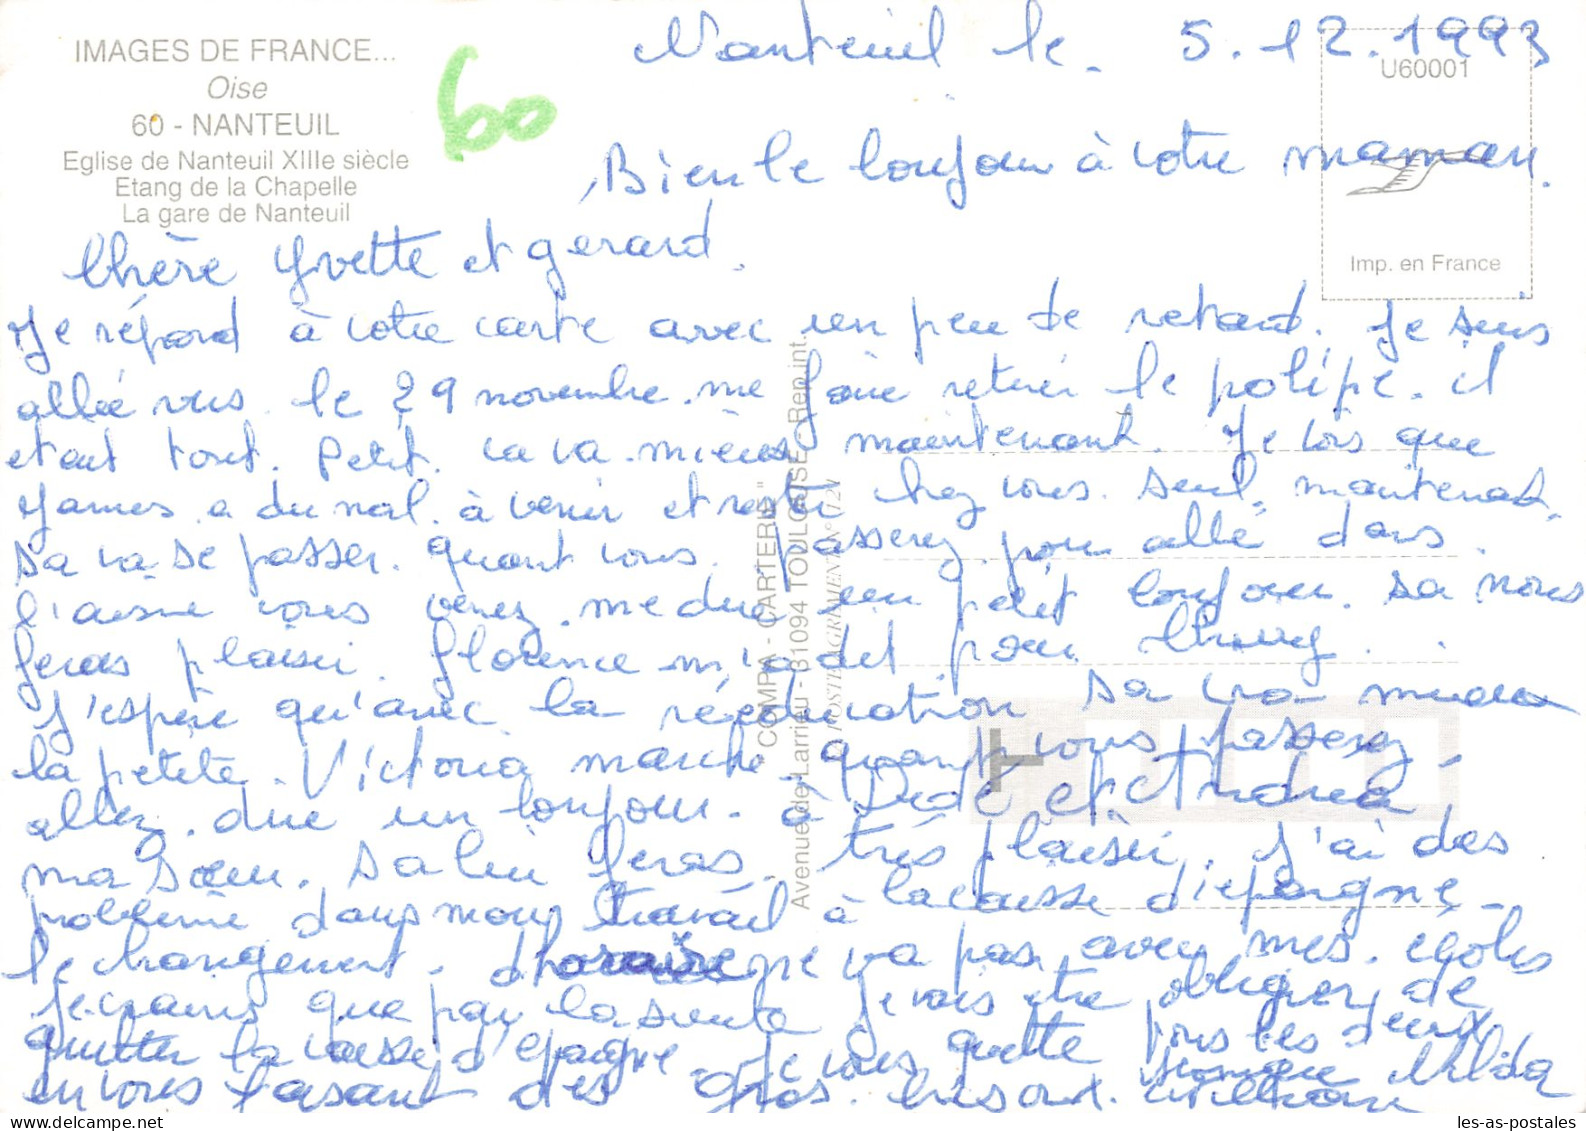 IMAGES DE FRANCE...
Oise
60 - NANTEUIL
Eglise de Nanteuil XIIIe siècle
Etang de la Chapelle
La gare de Nanteuil
60
Nanteuil le. 5.12.1993
U60001
Bien le bonjour à votre maman.
Imp. en France
Chère Yvette et gérard.
Je répond à votre carte avec un peu de retard. Je suis
allée vers le 29 novembre. me faire retirér le polipe. il
etait tout. Petit. ca va. mieux maintenant. Je vois que
James a du mal. à venir et resté chez vous. seul. maintenant.
sa va se passer. quant vous. passerez pour allé dans.
l'aisne vous venez. me dire un petit bonjour. sa nous
feras plaisir. florence m'a dit pour
J'espère qu'avec la rééducation sa ira mieux
la petite. Victoria marche. quant vous passerez
allez. dire un bonjour. à Dédé et Andréa
ma sœur. sa lui feras. trés plaisir. J'ai des
problème dans mon travail à la caisse d'epargne
le changement. d'horaire ne va pas avec mes. écoles
Je crains que par la suite je vais etre obliger de
quitter la caisse d'epargne. Je vous quette tous les deux
en vous faisant des gros. bisoux. William Hilda
COMPA - CARTERIE"
Avenue de Larrieu - 31094 TOULOUSE - Rep. int.
POSTE AGREMENT N° 1724
les-as-postales.com